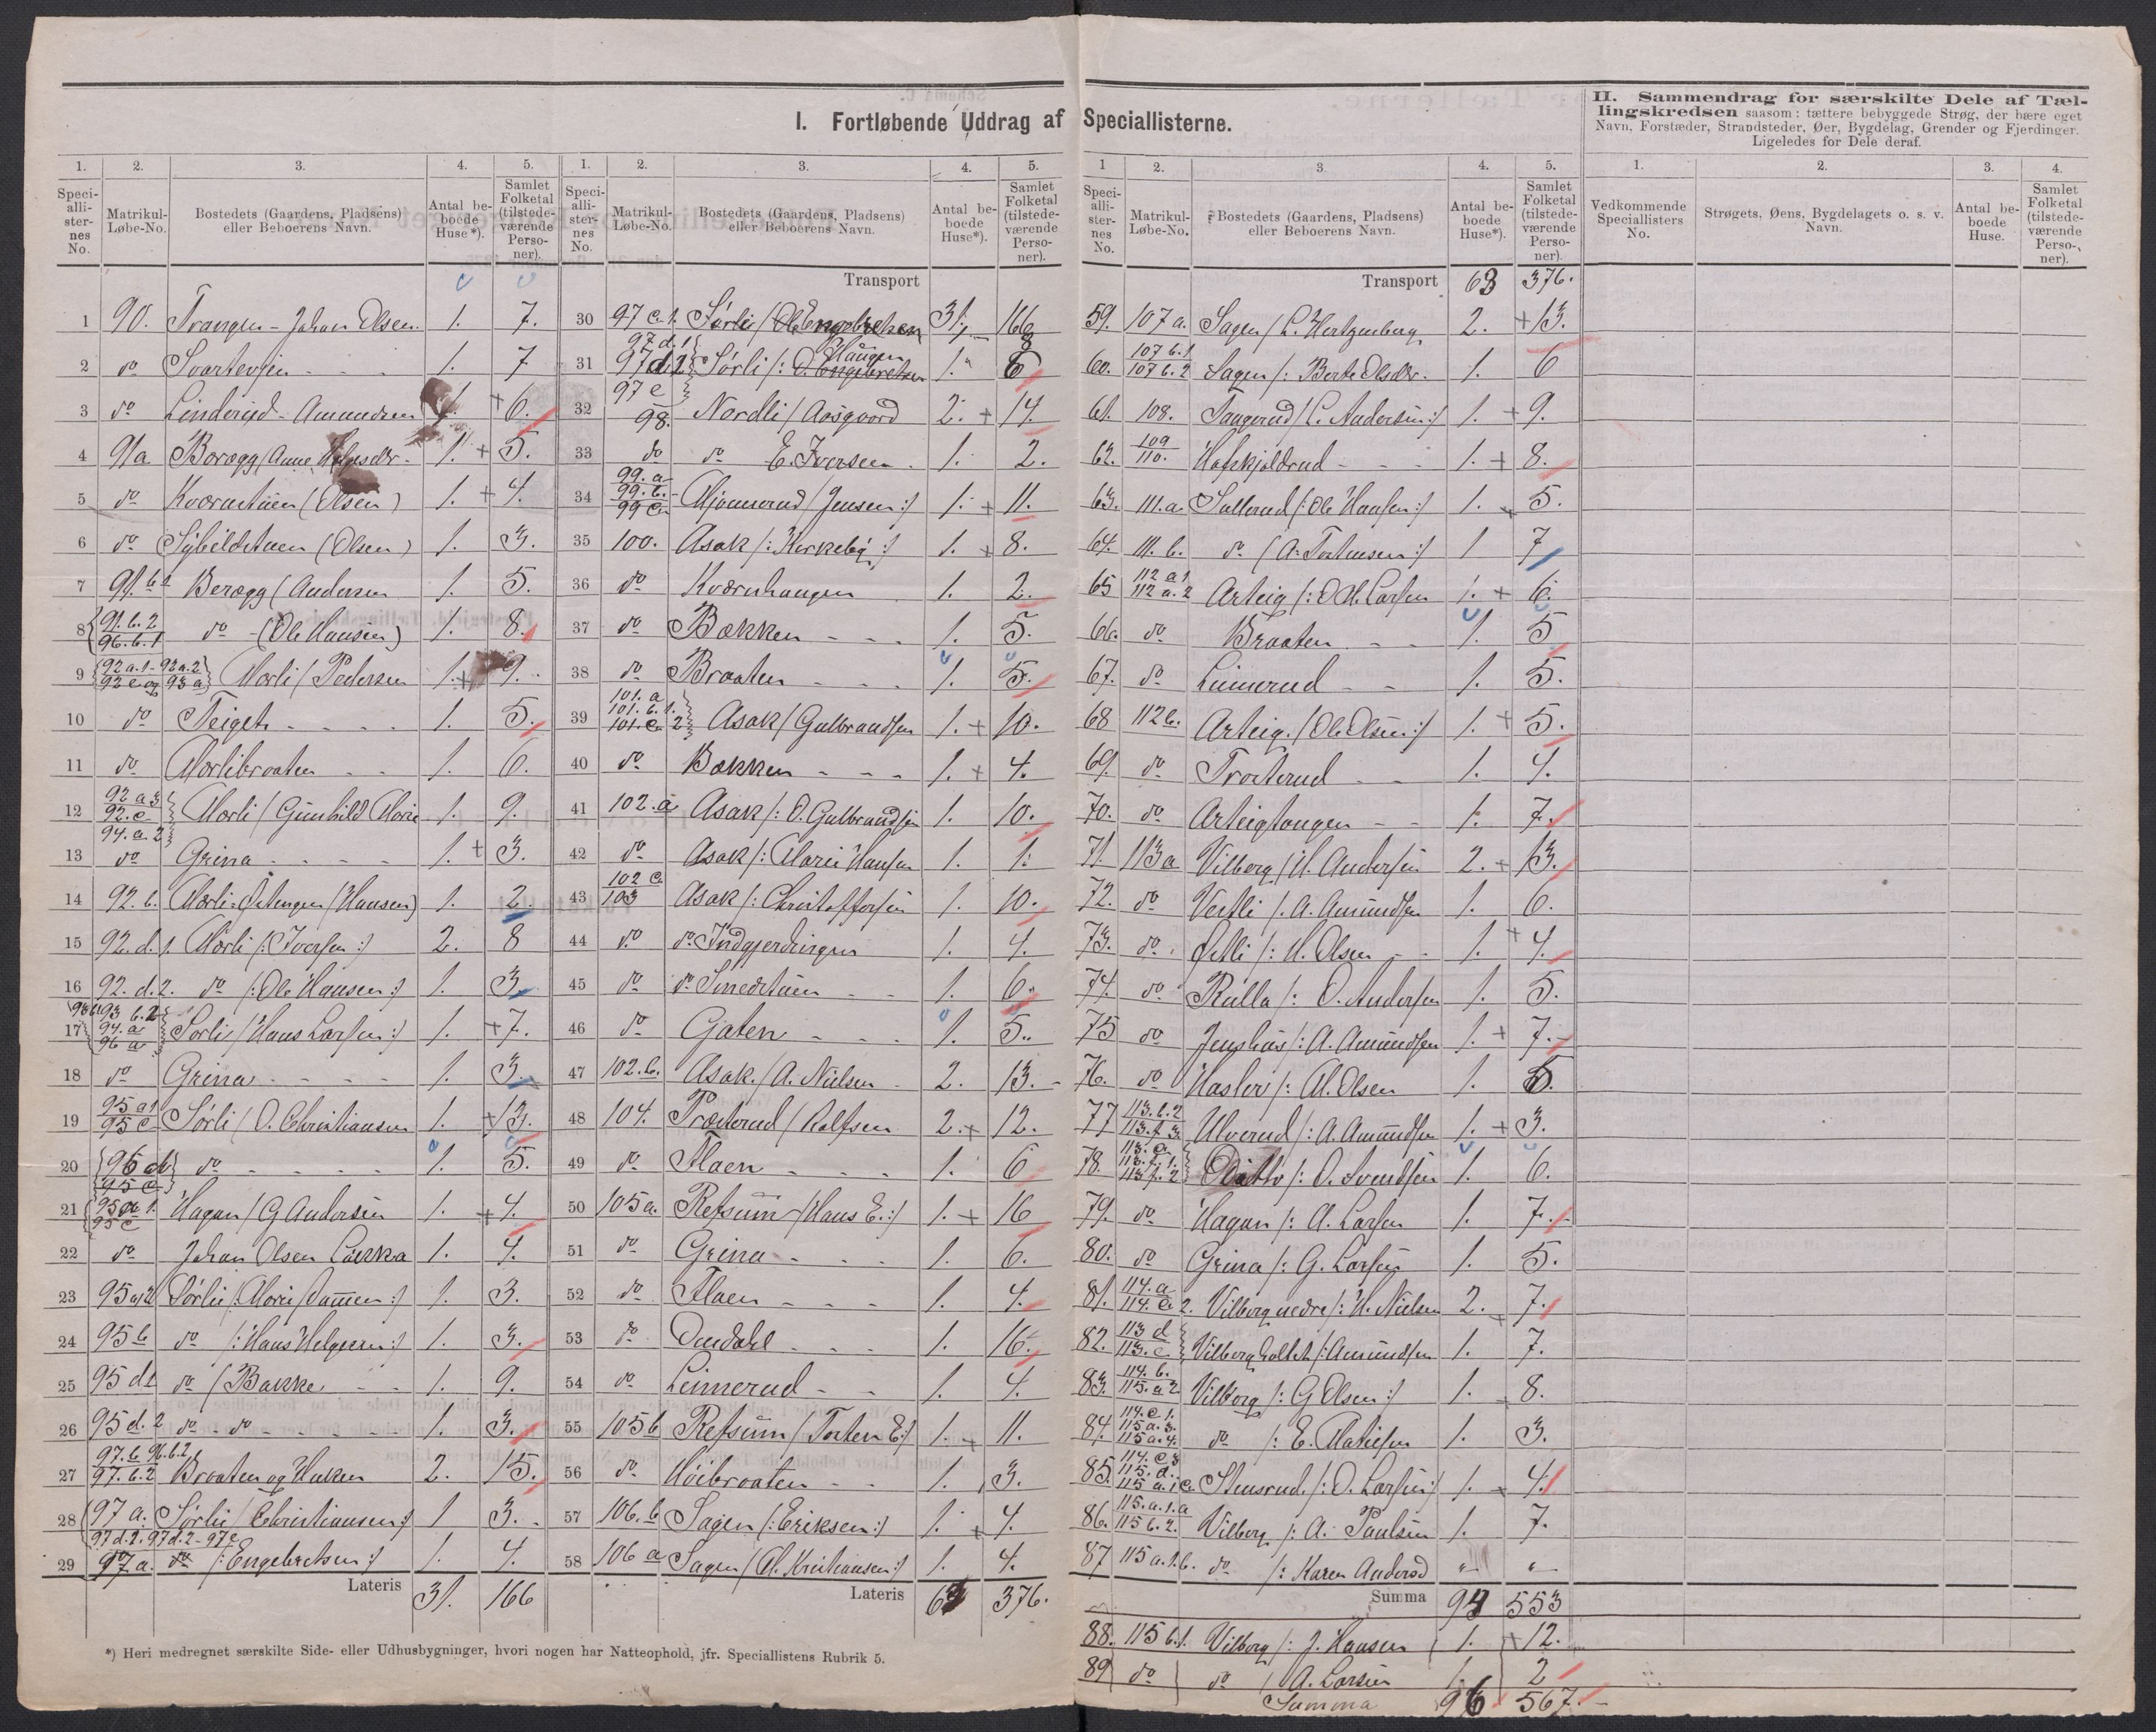 I. Fortløbende Uddrag af Speciallisterne.
1. 2. 3. 4. 5.
Speciallisternes No. Matrikul-Løbe-No. Bostedets (Gaardens, Pladsens) eller Beboerens Navn. Antal beboede Huse*). Samlet Folketal (tilstedeværende Personer).
1 90. Trangen - Johan Olsen. 1. 7.
2 do Svartevjen - - - 1. 7
3 do Linderud - Amundsen 1. 6.
4 91a Boregg (Anne 1. 5.
5 do Kværnstuen (Olsen) 1. 4.
6 do Sybildstuen (Olsen) 1. 3.
7 91.b.1 Beregg (Andersen 1. 5.
8 91.b.2 96.b.1 do - (Ole Hansen) 1. 8.
9 92a.1-92a.2 92c og 93a Morli / Pedersen 1. 9.
10 do Teiget - - - - 1. 5.
11 do Morlibraaten - - 1. 6.
12 92a3 92.c 94.a.2 Morli / Gunhild Marie 1. 9.
13 do Grina - - - - 1. 3.
14 92.b. Morli-Østengen (Hansen) 1. 2.
15 92.d.1. Morli /: Iversen :/ 2. 8
16 92.d.2. do /: Ole Hansen :/ 1. 3.
17 93 b.2 94.a 96 a Sørli / Hans Larsen :/ 1. 7.
18 do Grina - - - - 1. 3.
19 95a1 95c Sørli / O. Christiansen 1. 13.
20 do - - - - 1. 5.
21 95a1. 95c Hagan / G Andersen 1. 4.
22 do Johan Olsen Løkka 1. 4.
23 95a2 Sørli /: 1. 3.
24 95b do /: Hans Helgesen :/ 1. 3.
25 95d1 do / Bakke - - 1. 9.
26 95d.2 do - do - - - - 1. 3.
27 97.b 96.b.2 97.b.2 Braaten og Haken 2. 15.
28 97a. Sørli / Christiansen :/ 1 3.
29 97d.2 - 97e 97a. do /: Engebretsen :/ 1. 4.
Lateris 31. 166
*) Heri medregnet særskilte Side- eller Udhusbygninger, hvori nogen har Natteophold, jfr. Speciallistens Rubrik 5.
1. 2. 3. 4. 5.
Speciallisternes No. Matrikul-Løbe-No. Bostedets (Gaardens, Pladsens) eller Beboerens Navn. Antal beboede Huse*). Samlet Folketal (tilstedeværende Personer).
Transport 31. 166
30 97c.1. Sørli / O Engebretsen 1. 8
31 97d.1 97d2 97e Sørli /: O. Engebretsen Haugen 1. 6
32 98. Nordli / Aasgaard 2. 14.
33 do do E. Iversen. 1. 2.
34 99.a 99.b. 99c. Mjønnerud / Jensen :/ 1. 11.
35 100. Asak /: Kirkeby :/ 1. 8.
36 do Kværnhaugen 1. 2.
37 do Bakken - - - 1. 5.
38 do Braaten - - - 1. 5.
39 101.a 101.b.1. 101.c.2 Asak / Gulbrandsen 1. 10.
40 do Bakken - - - 1. 4.
41 102.a Asak /: O. Gulbrandsen 1. 10.
42 do Asak /: Maren Hansen 1. 1.
43 102 c. 103 Asak /: Christoffersen 1. 10.
44 do do Indgjerdingen 1. 4.
45 do do Smedstuen - - 1. 6.
46 do Gjaten - - - 1. 5.
47 102.b. Asak. / A. Nielsen - 2. 13.
48 104. Præsterud / Rolfsen 2. 12.
49 do Flaen - - - 1. 6
50 105a. Refsum / Hans E. :/ 1. 16
51 do Grina - - - 1. 6.
52 do Flaen - - - 1. 4.
53 do Omdahl - - - 1. 16.
54 do Leirerud - - 1. 4.
55 105b Refsum / Torsten E :/ 1. 11.
56 do Høibraaten - - 1. 3.
57 106.b Sagen /: Eriksen :/ 1. 4.
58 106a Sagen / M. Kristiansen :/ 1. 4.
Lateris 63 376.
1 2. 3. 4. 5.
Speciallisternes No. Matrikul-Løbe-No. Bostedets (Gaardens, Pladsens) eller Beboerens Navn. Antal beboede Huse*). Samlet Folketal (tilstedeværende Personer).
Transport 63 376.
59. 107a. Sagen / L. Hertzenberg 2. 13.
60. 107b.1 107b.2 Sagen /: Berte Olsdtr. 1. 6
61. 108. Taugerud / L. Andersen :/ 1. 9.
62. 109 110. Hofskjoldrud - - - 1. 8.
63. 111.a Sullerud /: Ole Hansen :/ 1. 5.
64. 111.b. do / A. Torstensen :/ 1 7
65 112a1 112a.2 Arteig /: O M. Larsen 1. 6.
66. do Braaten - - 1. 5
67. do Leirerud - - 1. 5.
68 112b. Arteig. / Ole Olsen :/ 1. 5.
69. do Trosterud - - 1. 4.
70. do Arteigtangen - - 1. 7.
71. 113a Vilberg / H. Andersen 2. 13.
72. do Vestli /: A. Amundsen 1. 6.
73. do. Østli /: H. Olsen - - 1. 4.
74. do Rulla /: O. Andersen 1. 5.
75 do Jenshus /: A. Amundsen 1. 7.
76. do Hasler /: M. Olsen 1. 5.
77 113.b.2 113.f.3. Ulverud /: A. Amundsen 1. 3.
78. 113.f.1. 113f.2 Ditto /: O. Svendsen 1. 6.
79. do Hagan /: A. Larsen 1. 7.
80. do Grina /: G. Larsen 1. 5.
81. 114.a 114.c.2. Vilberg nedre /: H. Nielsen 2. 7.
82. 113d 113.c. Vilberg Holtet /: Amundsen 1. 7.
83. 114.b. 115.a2 Vilberg /: G Olsen :/ 1. 8.
84. 114.c1. 115a.3. 115a.4. do /: E. Mathiesen 1. 3.
85. 114.c.3 115.d. Stensrud. /: O. Larsen :/ 1. 4.
86. 115.a.1.a 115b.2. Vilberg /: A. Paulsen 1. 7.
87 115a.1.b. do /: Karen Andersd " "
Summa 94 553
88. 115b.1. Vilberg /: J. Hansen 1. 12.
89 do do / A. Larsen 1. 2
Summa 96 567.
II. Sammendrag for særskilte Dele af Tællingskredsen saasom: tættere bebyggede Strøg, der bære eget
Navn, Forstæder, Strandsteder, Øer, Bygdelag, Grender og Fjerdinger.
Ligeledes for Dele deraf.
1. 2. 3. 4.
Vedkommende Speciallisters No. Strøgets, Øens, Bygdelagets o. s. v. Navn. Antal beboede Huse. Samlet Folketal (tilstedeværende Personer).